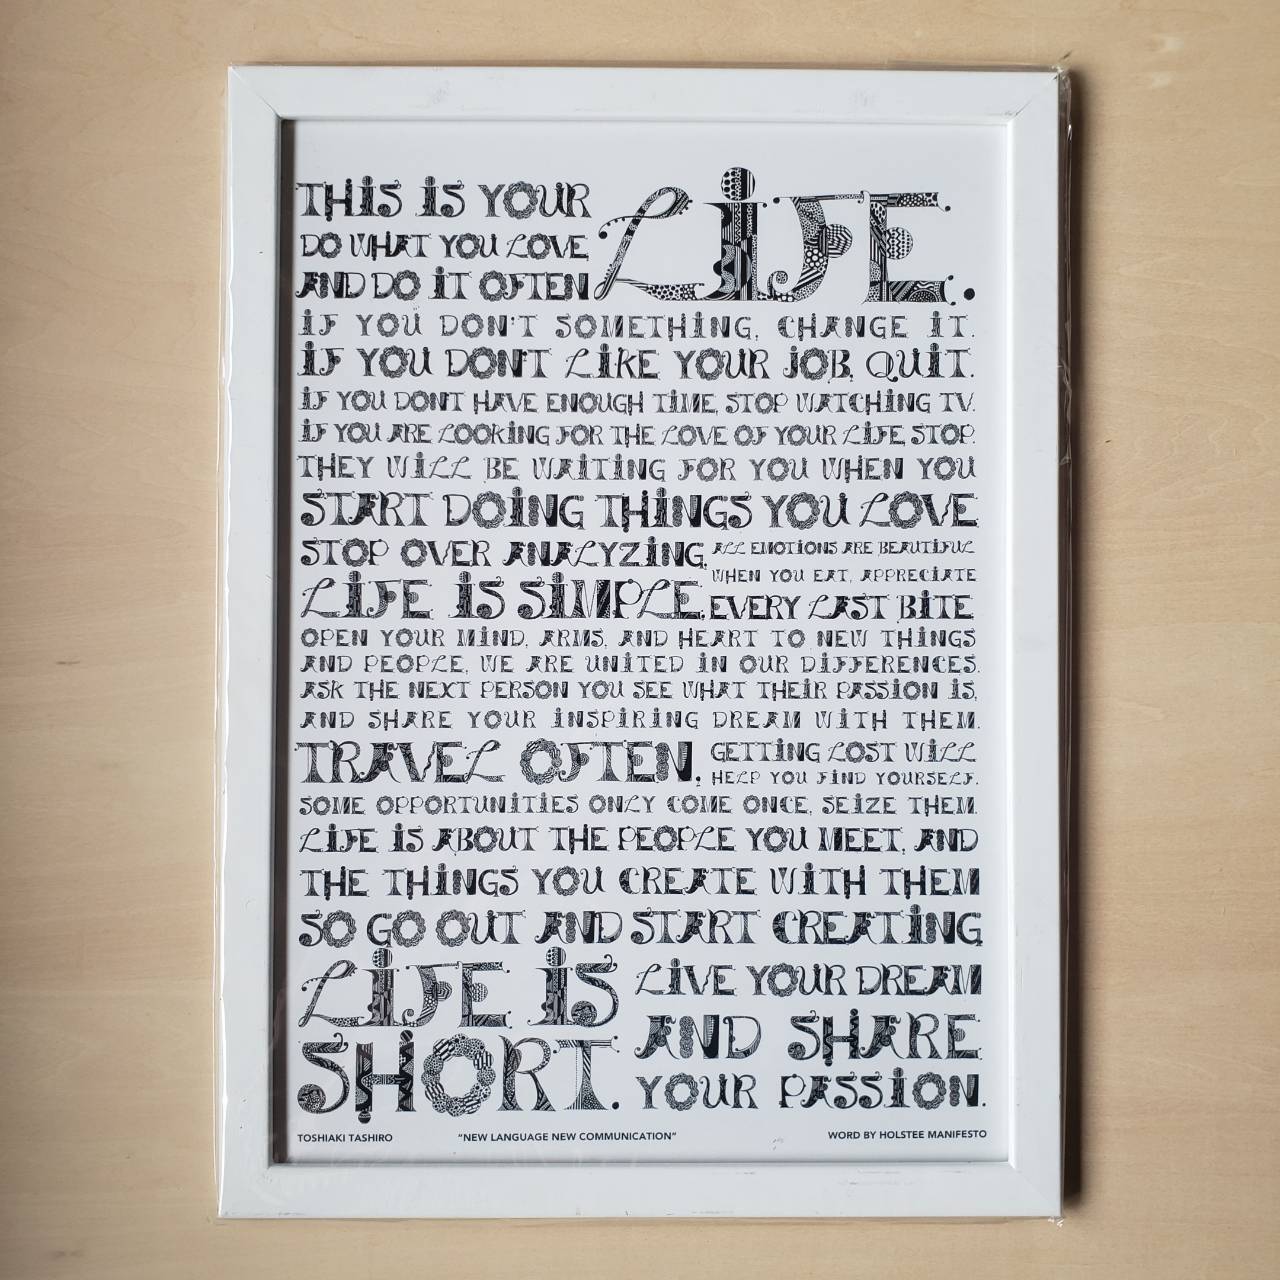 THIS IS YOUR LIFE.
DO WHAT YOU LOVE
AND DO IT OFTEN
IF YOU DON'T SOMETHING, CHANGE IT.
IF YOU DON'T LIKE YOUR JOB, QUIT.
IF YOU DONT HAVE ENOUGH TIME, STOP WATCHING TV.
IF YOU ARE LOOKING FOR THE LOVE OF YOUR LIFE, STOP.
THEY WILL BE WAITING FOR YOU WHEN YOU
START DOING THINGS YOU LOVE
STOP OVER ANALYZING,
LIFE IS SIMPLE.
ALL EMOTIONS ARE BEAUTIFUL
WHEN YOU EAT, APPRECIATE
EVERY LAST BITE
OPEN YOUR MIND, ARMS, AND HEART TO NEW THINGS
AND PEOPLE, WE ARE UNITED IN OUR DIFFERENCES.
ASK THE NEXT PERSON YOU SEE WHAT THEIR PASSION IS,
AND SHARE YOUR INSPIRING DREAM WITH THEM.
TRAVEL OFTEN,
GETTING LOST WILL
HELP YOU FIND YOURSELF.
SOME OPPORTUNITIES ONLY COME ONCE, SEIZE THEM.
LIFE IS ABOUT THE PEOPLE YOU MEET, AND
THE THINGS YOU CREATE WITH THEM
SO GO OUT AND START CREATING
LIFE IS
SHORT.
LIVE YOUR DREAM
AND SHARE
YOUR PASSION.
TOSHIAKI TASHIRO
"NEW LANGUAGE NEW COMMUNICATION"
WORD BY HOLSTEE MANIFESTO